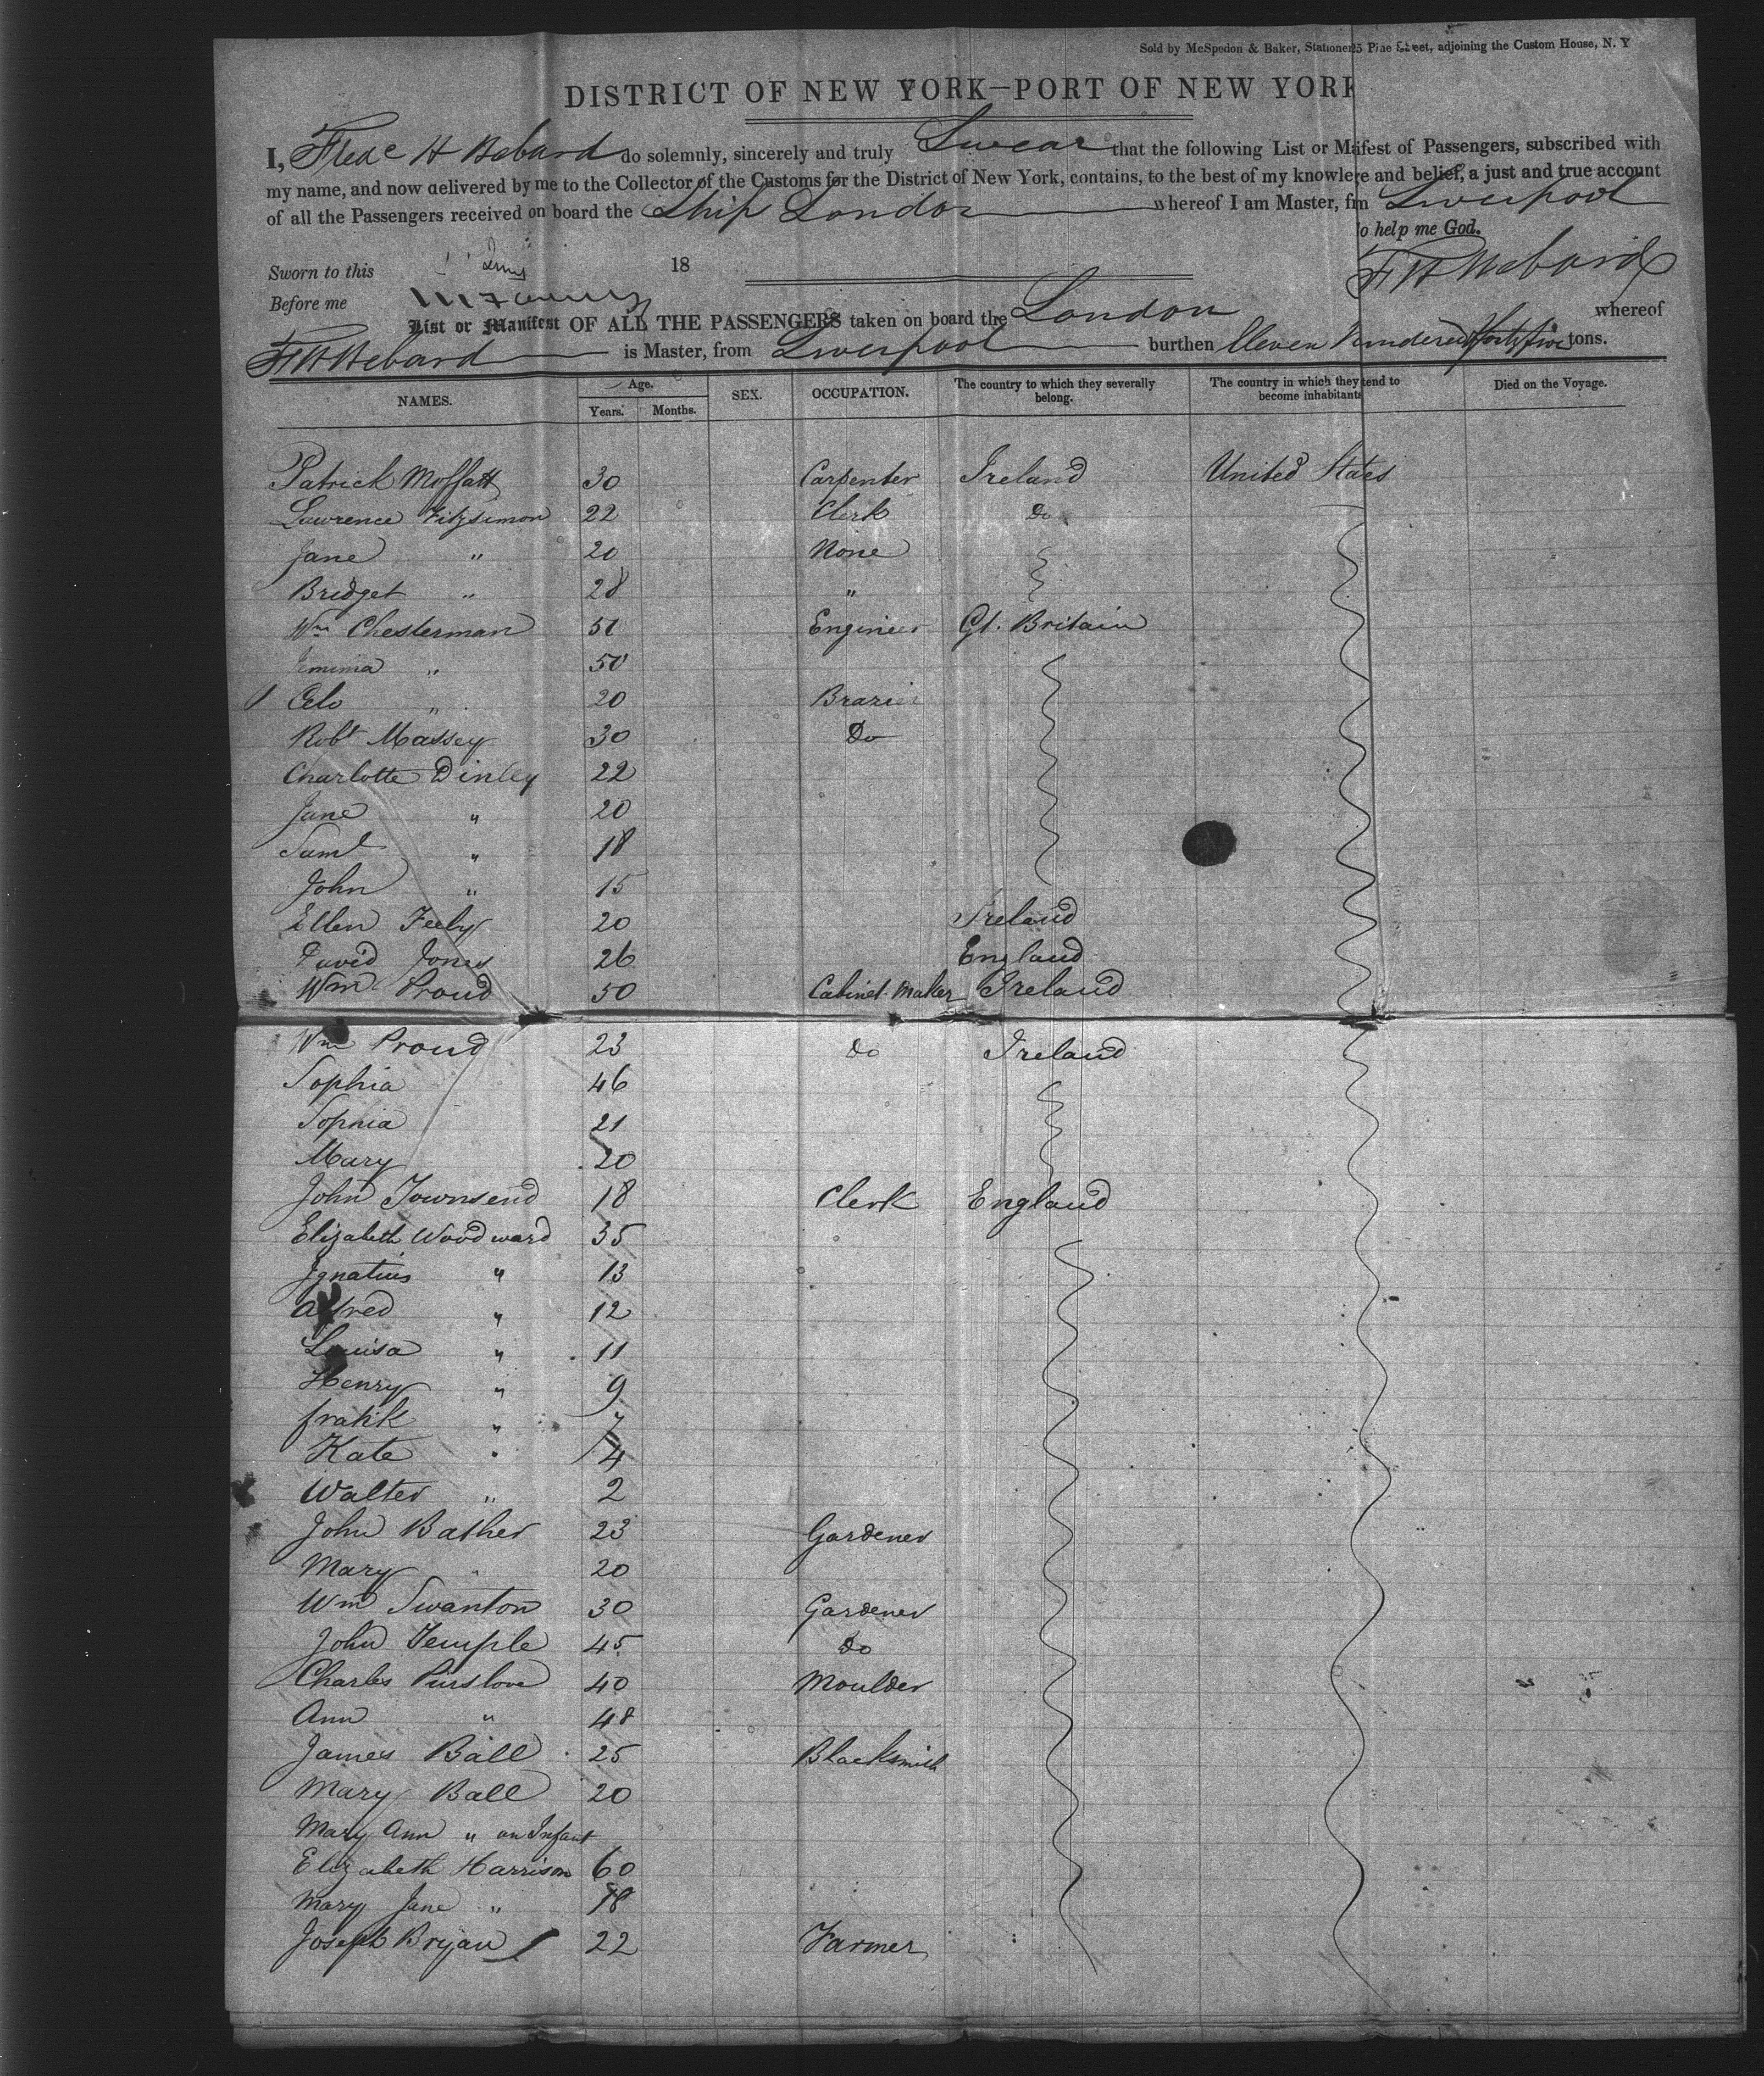 Sold by McSpedon & Baker, Stationers 25 Pine Street, adjoining the Custom House, N. Y
DISTRICT OF NEW YORK—PORT OF NEW YORK
I, H Hebard do solemnly, sincerely and truly Swear that the following List or Manifest of Passengers, subscribed with
my name, and now delivered by me to the Collector of the Customs for the District of New York, contains, to the best of my knowledge and belief, a just and true account
of all the Passengers received on board the Ship London whereof I am Master, from Liverpool
So help me God.
Sworn to this 18 F H Hebard
Before me
List or Manifest OF ALL THE PASSENGERS taken on board the London whereof
F H Hebard is Master, from Liverpool burthen Eleven Hundred forty five tons.
NAMES. Age. Years. Months. SEX. OCCUPATION. The country to which they severally belong. The country in which they intend to become inhabitants Died on the Voyage.
Patrick Moffatt 30 Carpenter Ireland United States
Lawrence Fitzsimon 22 Clerk Do
Jane " 20 None
Bridget " 28 "
Wm Chesterman 51 Engineer Gt. Britain
Jemima " 50
" 20 Brazier
Robt Massey 30 Do
Charlotte Dinley 22
Jane " 20
Saml " 18
John " 15
Ellen Feely 20 Ireland
David Jones 26 England
Wm Proud 50 Cabinet Maker Ireland
Wm Proud 23 Do Ireland
Sophia 46
Sophia 21
Mary 20
John Townsend 18 Clerk England
Elizabeth Woodward 35
Ignatius " 13
Alfred " 12
Louisa " 11
Henry " 9
frank " 7
Kate " 4
Walter " 2
John Bather 23 Gardener
Mary " 20
Wm Swanton 30 Gardener
John Temple 45 Do
Charles Purslove 40 Moulder
Ann " 48
James Ball 25 Blacksmith
Mary Ball 20
Mary Ann " an Infant
Elizabeth Harrison 60
Mary Jane " 18
Joseph Bryan 22 Farmer